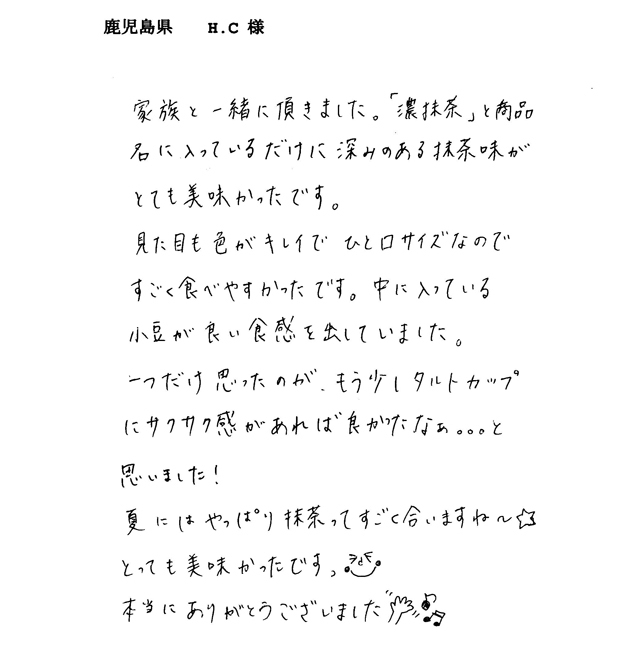 鹿児島県 H.C 様
家族と一緒に頂きました。「濃抹茶」と商品
名に入っているだけに深みのある抹茶味が
とても美味かったです。
見た目も色がキレイでひと口サイズなので
すごく食べやすかったです。中に入っている
小豆が良い食感を出していました。
一つだけ思ったのが、もう少しタルトカップ
にサクサク感があれば良かったなぁ。。。と
思いました!
夏にはやっぱり抹茶ってすごく合いますね〜☆
とっても美味かったです、
本当にありがとうございました